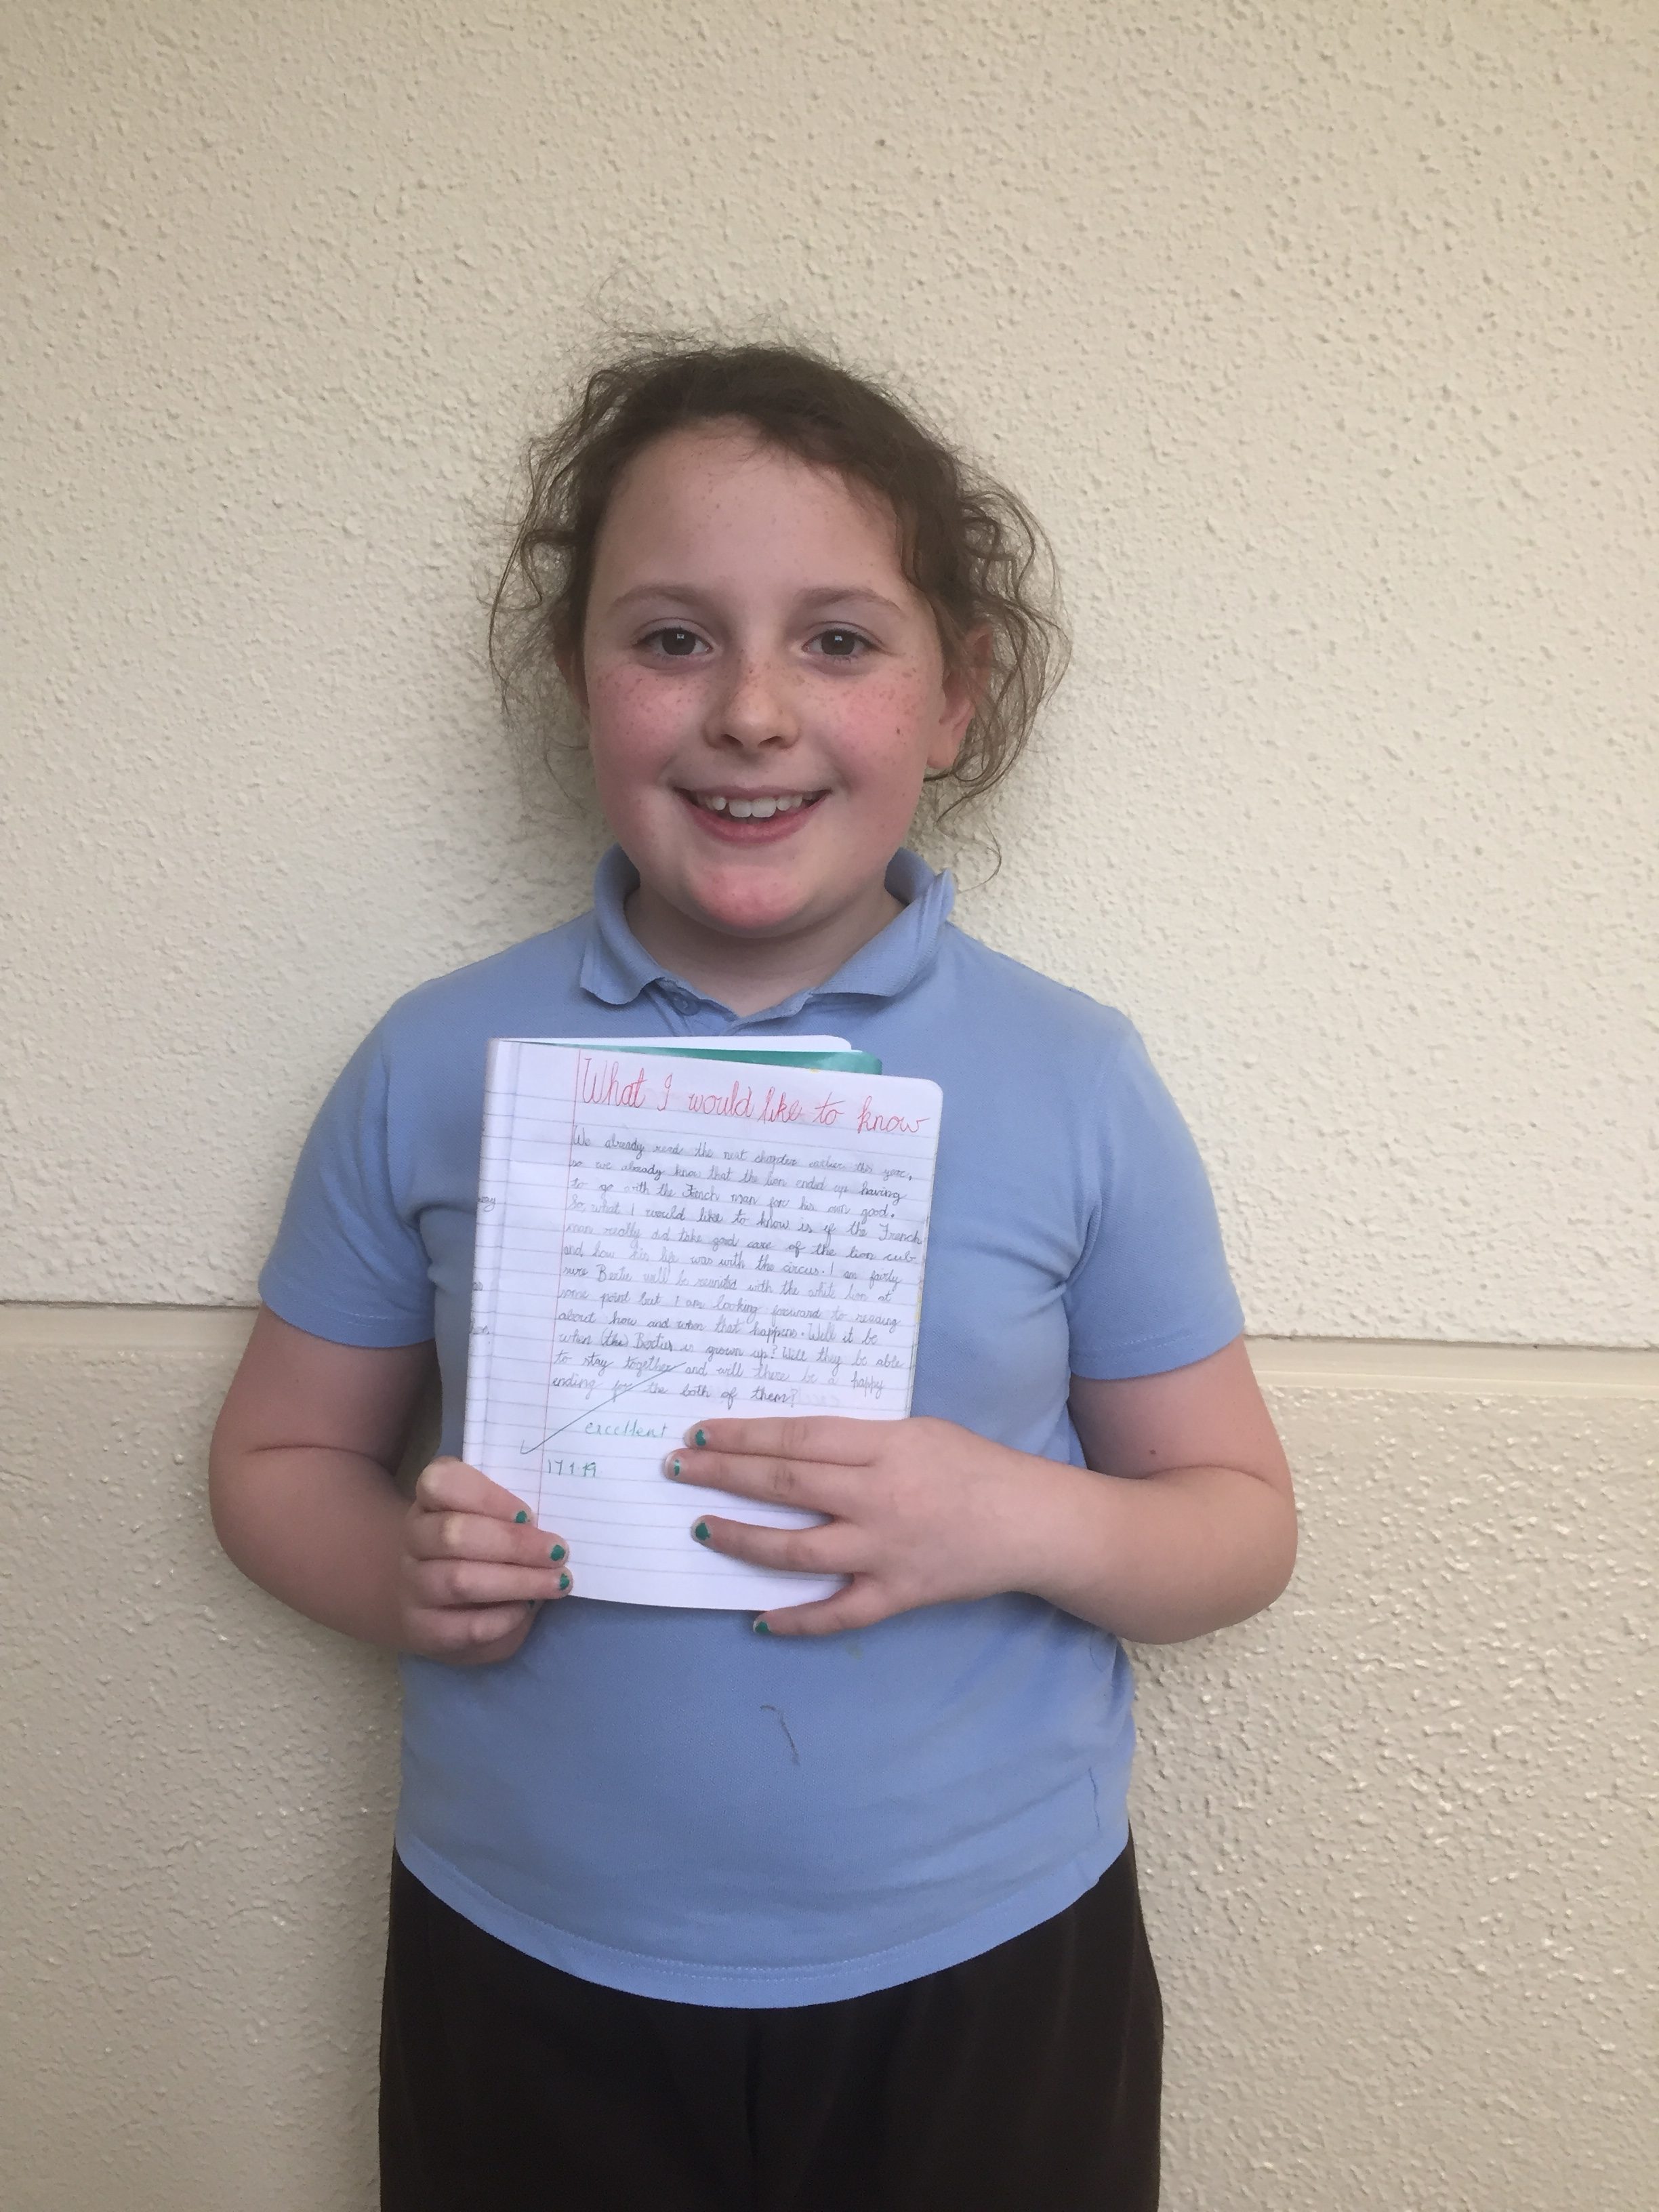 What I would like to know
We already read the next chapter earlier this year,
so we already know that the lion ended up having
to go with the French man for his own good.
So what I would like to know is if the French
man really did take good care of the lion cub
and how his life was with the circus. I am fairly
sure Bertie will be reunited with the white lion at
some point but I am looking forward to reading
about how and when that happens. Will it be
when (the) Bertie is grown up? Will they be able
to stay together and will there be a happy
ending for the both of them?
excellent